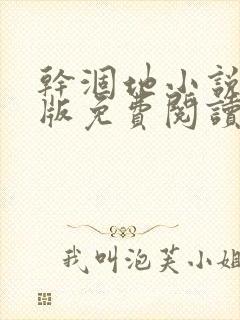 幹涸地小說
版免費閱讀
我叫泡芙小姐